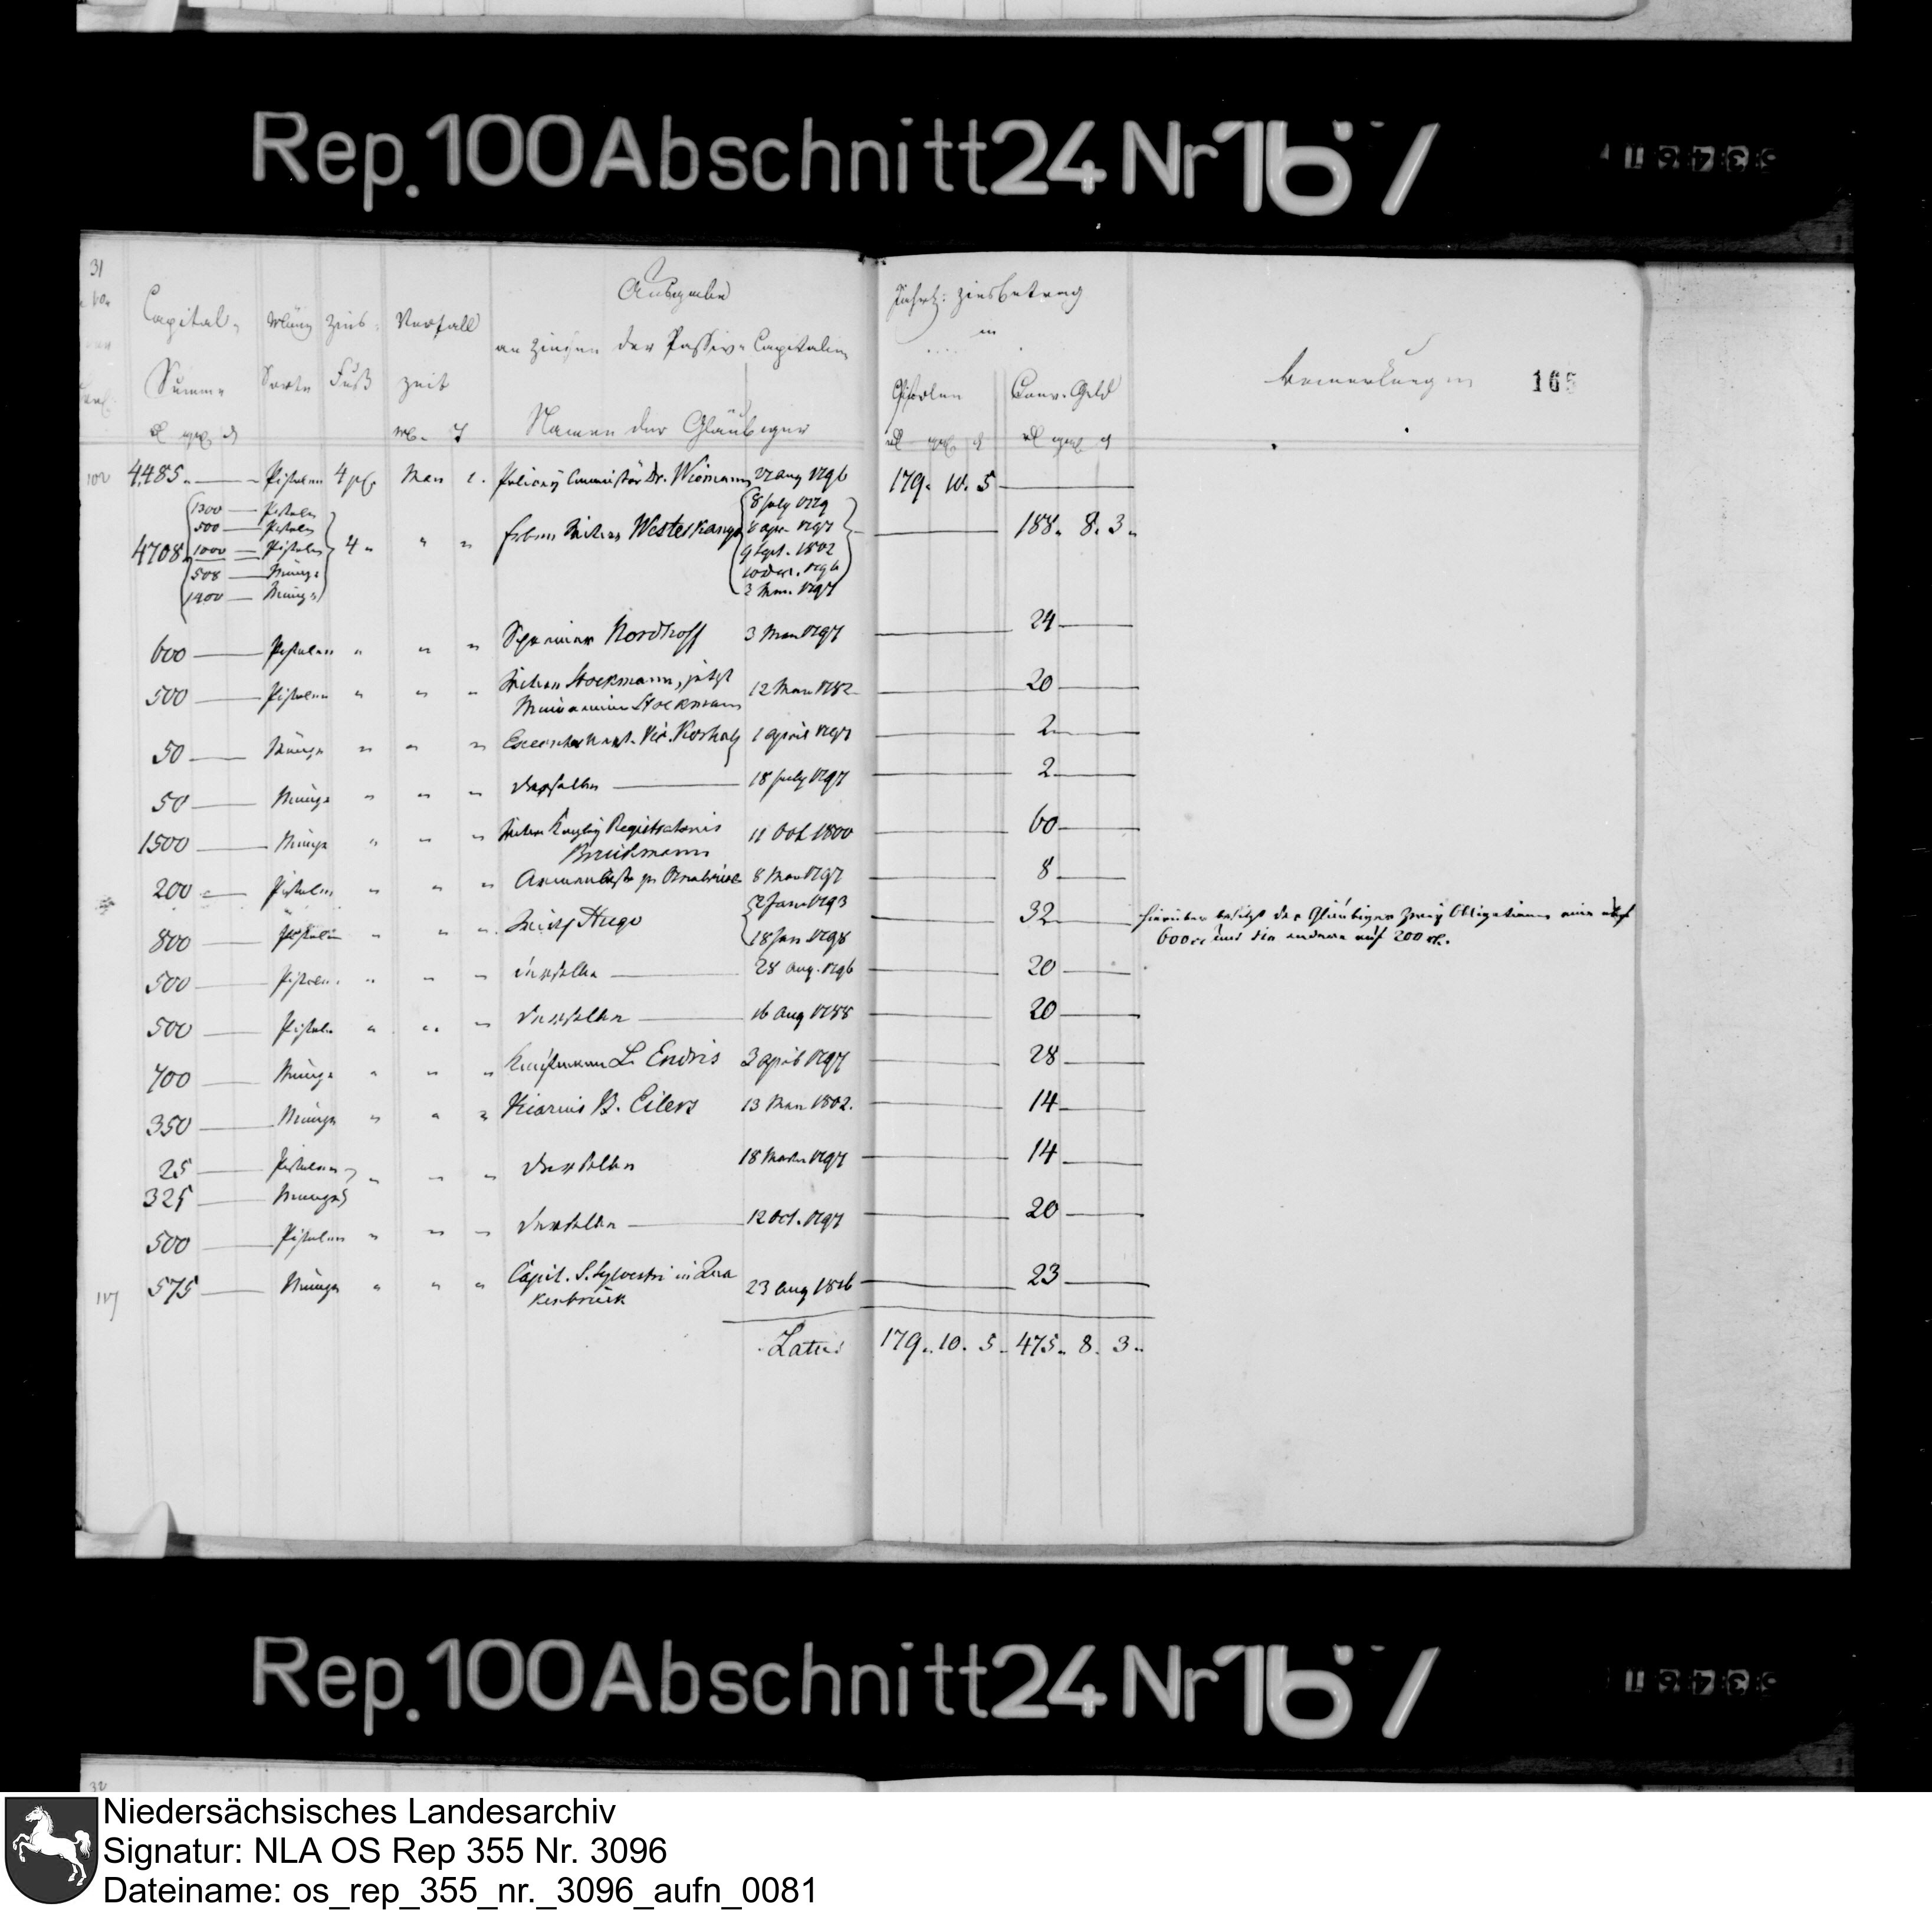 Rep. 100 Abschnitt 24 Nr 167
31
Ausgaben
an Zinsen der Passiv-Capitalien
Capital- Münz Zins- Verfall Jährl: Zinsbetrag
in
Summe Sorte Fuß zeit Namen der Gläubiger Pistolen Conv. Geld Bemerkungen 165
102 4485. — Pistolen 4 pC. May 1. Commissär Dr. Wiemann 27 Aug 1796 179. 10. 5 —
1300 — Pistolen 8 July 1779
500 — Pistolen 8 Apr. 1797
4708. 1000 — Pistolen 4 " " " Erben Westerkamp 9 Sept. 1802 — 188. 8. 3.
508 — Münze 10 Dec. 1796
1400 — Münze 3 May. 1797
600 — Pistolen " " " Nordhoff 3 May 1797 — 24 —
500 — Pistolen " " " Stockmann, jetzt 12 May 1782 — 20 —
Stockmann
50 — Münze " " " 1 April 1797 — 2 —
50 — Münze " " " derselbe — 18 July 1797 — 2 —
1500 — Münze " " " Registratoris 11 Oct 1800 — 60 —
Brickmann
200 — Pistolen " " " 8 May 1797 — 8 —
2 Jan 1793
800 — Pistolen " " " Hugo — 32 — Hierüber besitzt der Gläubiger zwey Obligationen eine auf
18 Jan 1798 600 und die andere auf 200
500 — Pistolen " " " derselbe — 28 Aug. 1796 — 20 —
500 — Pistolen " " " derselbe — 16 Aug 1788 — 20 —
700 — Münze " " " Kaufmann L. Endris 3 April 1797 — 28 —
350 — Münze " " " Vicarius B. Eilers 13 May 1802. — 14 —
25 — Pistolen " " " derselbe 18 1797 — 14 —
325 — Münze
500 — Pistolen " " " derselbe — 12 Oct. 1797 — 20 —
117 575 — Münze " " " Capit. S. Sylvestri in Qua 23 Aug 1806 — 23 —
kenbrück
Latus 179. 10. 5 475. 8. 3.
Rep. 100 Abschnitt 24 Nr 167
32
Niedersächsisches Landesarchiv
Signatur: NLA OS Rep 355 Nr. 3096
Dateiname: os_rep_355_nr._3096_aufn_0081